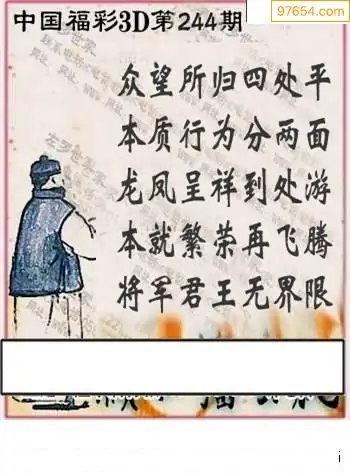 97654.com
中国福彩3D第244期
众望所归四处平
本质行为分两面
龙凤呈祥到处游
本就繁荣再飞腾
将军君王无界限
i